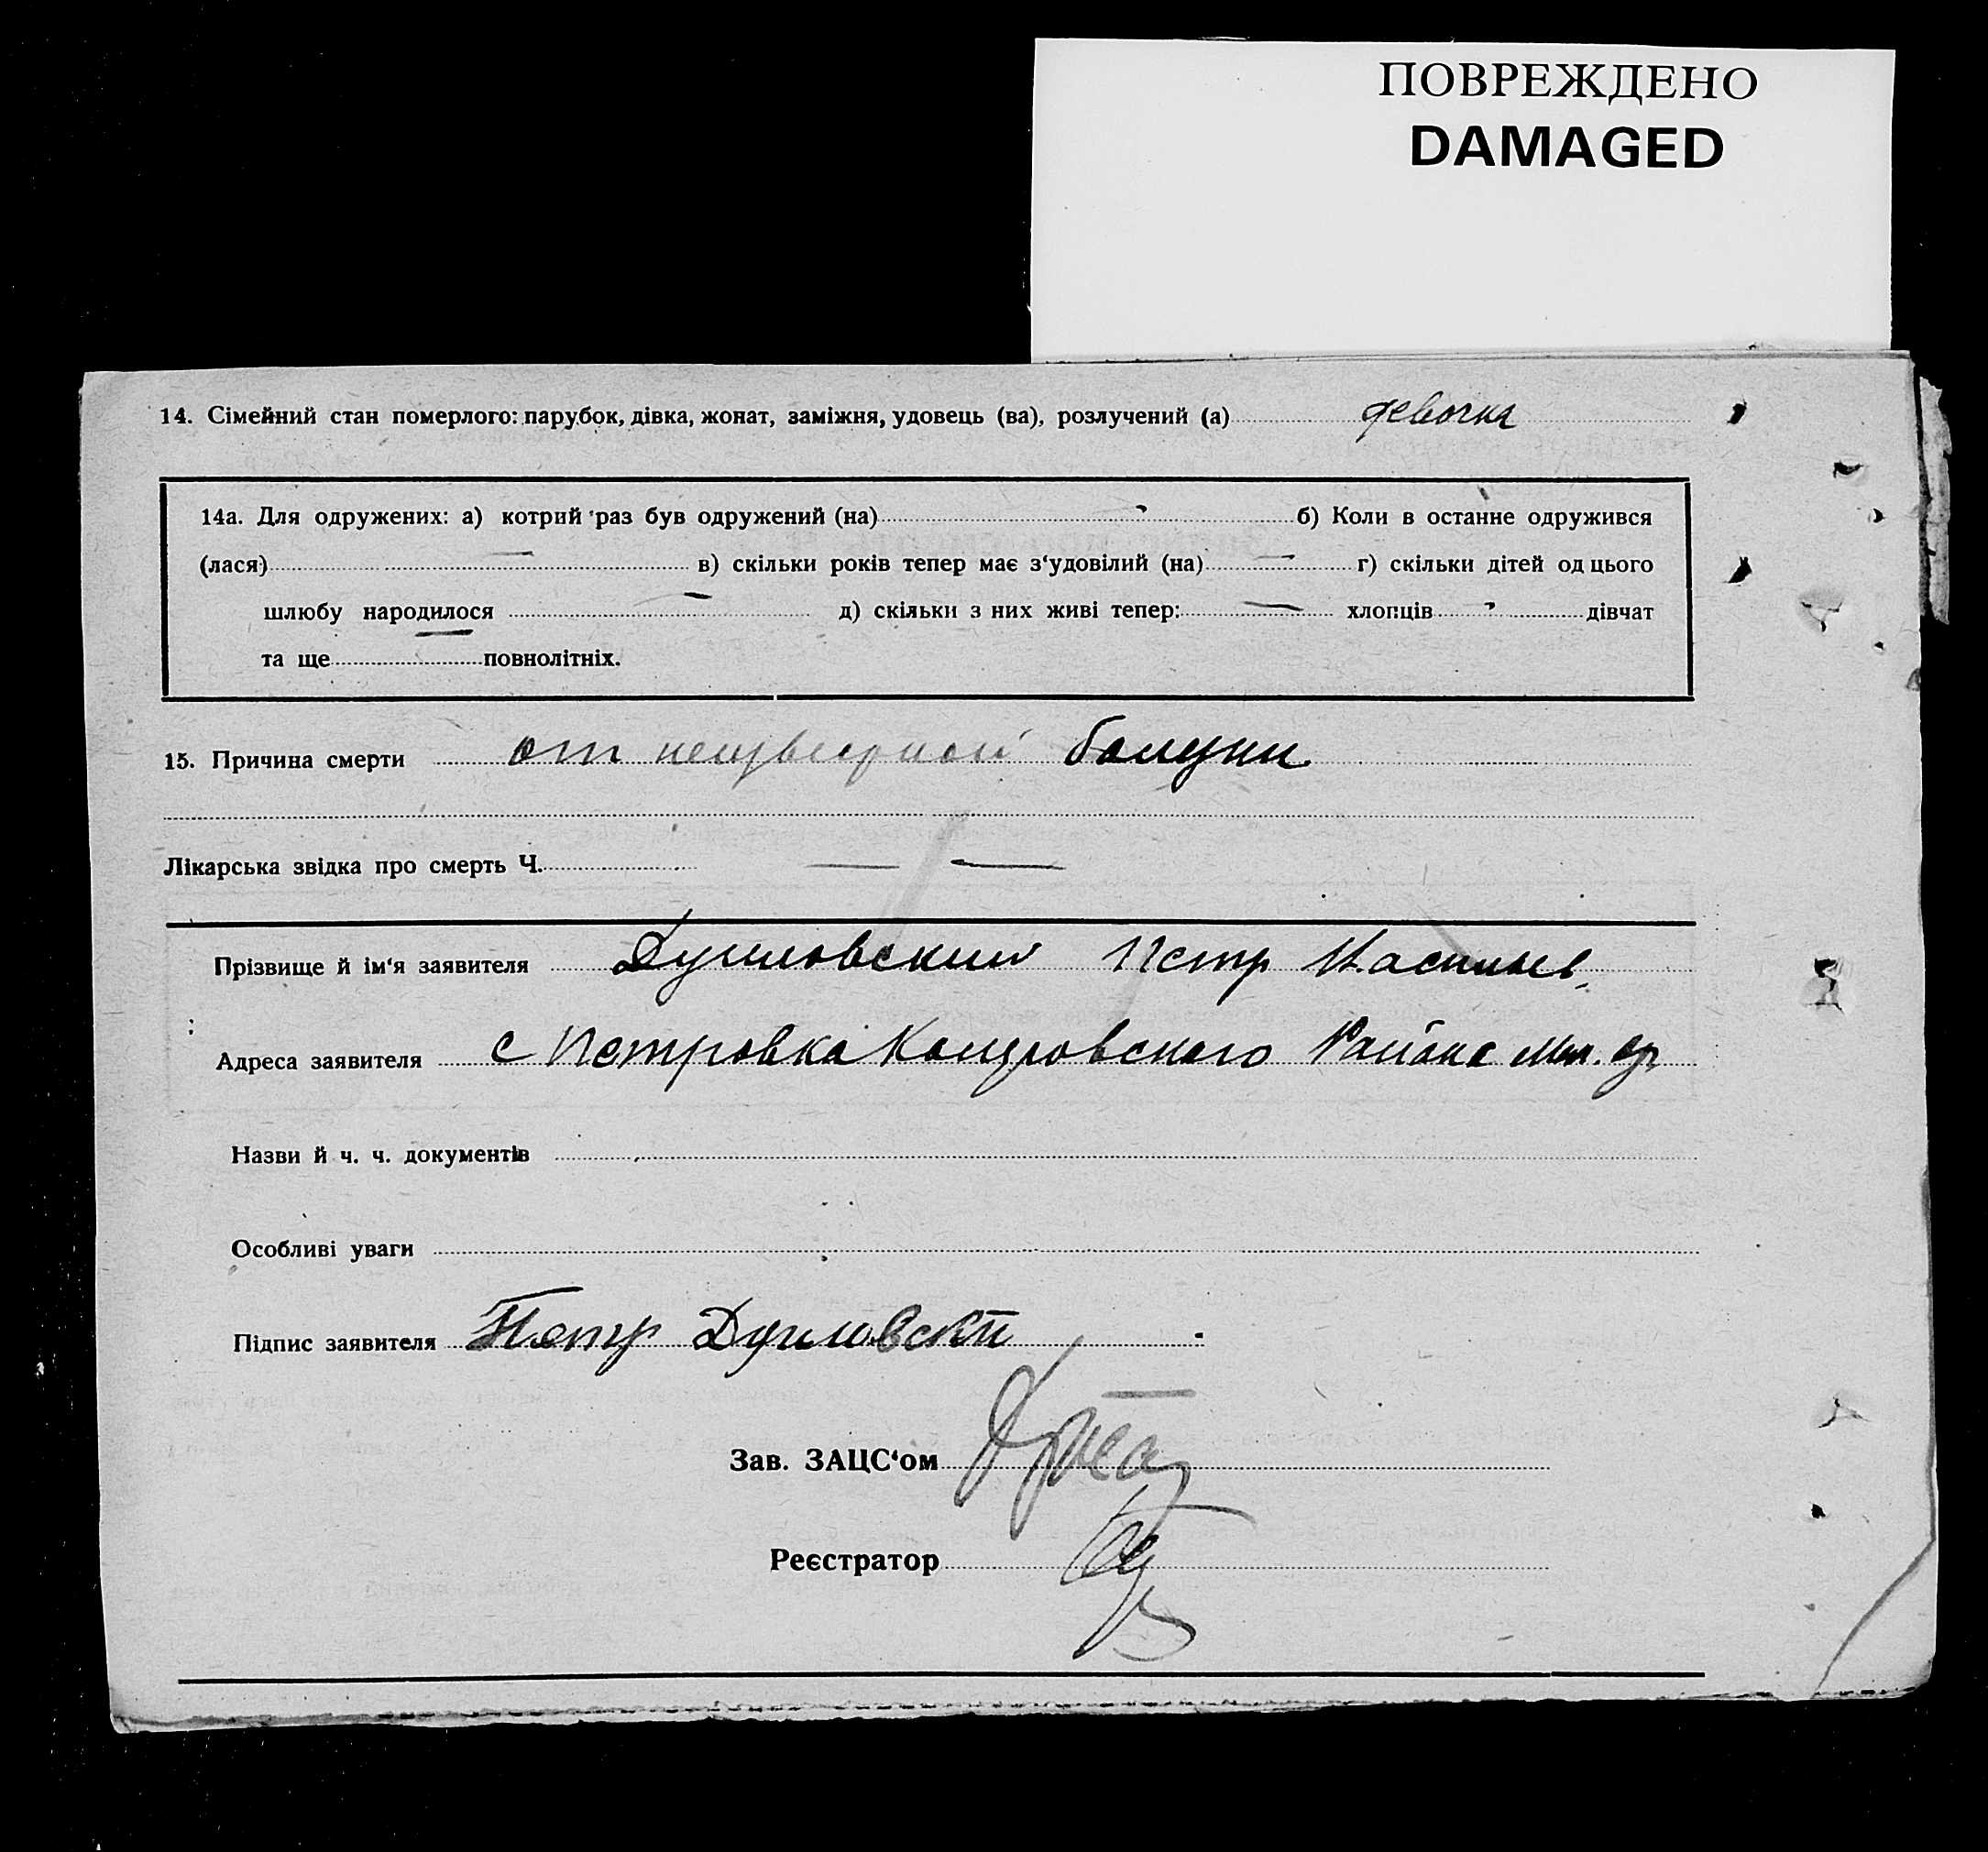 ПОВРЕЖДЕНО
DAMAGED
14. Сімейний стан померлого: парубок, дівка, жонат, заміжня, удовець (ва), розлучений (а) девочка
14а. Для одружених: а) котрий раз був одружений (на) б) Коли в останне одружився
(лася) — в) скільки років тепер має з‘удовілий (на) — г) скільки дітей од цього
шлюбу народилося — д) скільки з них живі тепер: — хлопців дівчат
та ще — повнолітніх.
15. Причина смерти от неизвестной болезни
Лікарська звідка про смерть Ч. — —
Прізвище й ім‘я заявителя Петр
Адреса заявителя с Петровка Района Мел. окр
Назви й ч. ч. документів
Особливі уваги
Підпис заявителя Петр
Зав. ЗАЦС‘ом
Реєстратор